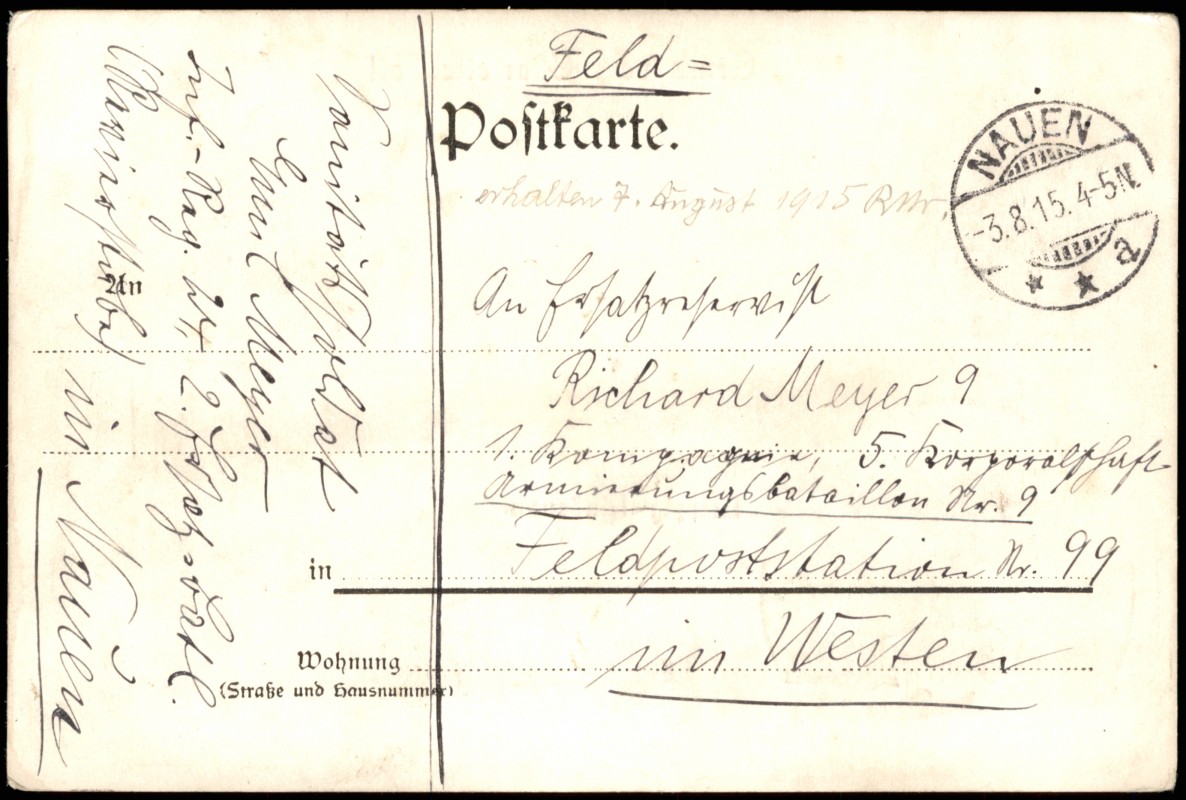 Feld=
Postkarte.
NAUEN
-3.8.15.4-5N.
* * a
erhalten 7. August 1915
An Ersatzreservist
Richard Meyer 9
1. Kompagnie, 5. Korporalschaft
Armierungsbataillon Nr. 9
Feldpoststation Nr. 99
im Westen
An
in
Wohnung
(Straße und Hausnummer)
Sanitätssoldat
Meyer
Inf.-Reg. 24, 2. Ersatzbatl.
(Revierstube)
in Nauen